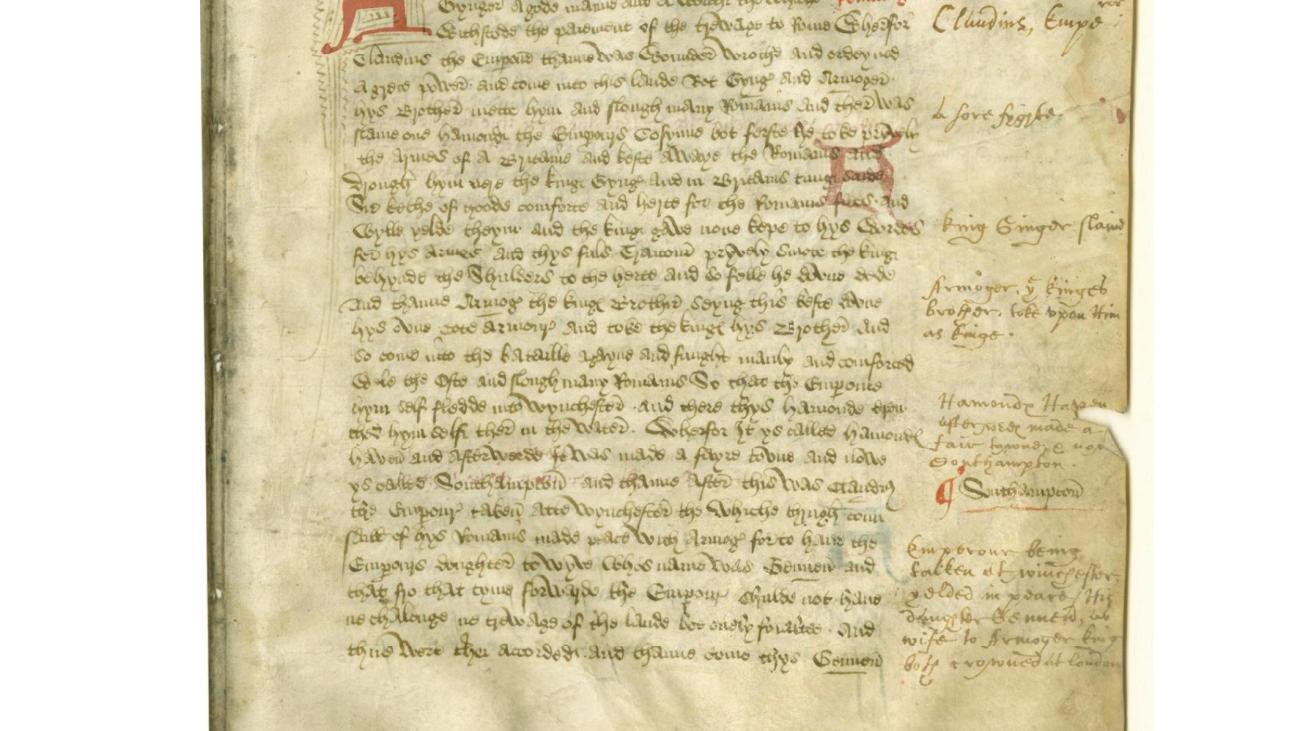 Gynger a gode manne and a
Withstode the paiement of the trewage to Rome Wherfor
Claudius the Empour thanne was Wonnder Wrothe and ordeyned
a grete power and come into this lande Bot Gyng and Armoger
hys Brother mette hym and slough many Romanis And ther was
slaine one hamonde the Empouris Cosyune bot ferste he toke pryvely
the Armes of a Britane and keste Awaye the Romanis and
drough hym nere the kinge Gyng And in Britanis tunge saide
Sir bethe of goode comforte and herte for the Romanis And
Wylle yelde theym and the kinge gave none kepe to hys Wordes
for hys armes and thys fals Traitour pryvely smote the kinge
behynde the Shulders to the herte and so felle he doune dede
And thanne Armog the kinge Brother seyng this keste doune
hys oune cote armour and toke the kinge hys Brother And
so come into the bataille agayne and faught manly and comforted
Wele the Oste and slough many Romanis So that the Emperoure
hym self fledde into Wynchester and there thys hamonde
hym selfe ther in the Water Wherfor It ys called hamonde
haven and afterwarde It was made a fayre toune and nowe
ys called Southampton and thanne after this was Claudius
the Empour taken atte Wynchester the Whiche thrugh coun
saile of hys Romanis made peace With Armog for to have the
Emperis doughter to Wyve Whos name was Gennen and
that fro that tyme forwarde the Empour Shulde not have
ne chalenge no trewage of the lande bot onely And
thus Wert thei accorded and thanne come thys Gennen
Claudius, Empe
A sore fighte
King Ginger slaine
Armoger, ye kinges
brother, toke upon him
as kinge.
Hamonde Haven
afterward made a
fair towne & now
Southampton.
¶ Southampton
Emperour being
taken at Winchester
yelded in peace his
daughter Gennen, as
wife to Armoger king
both crowned at London